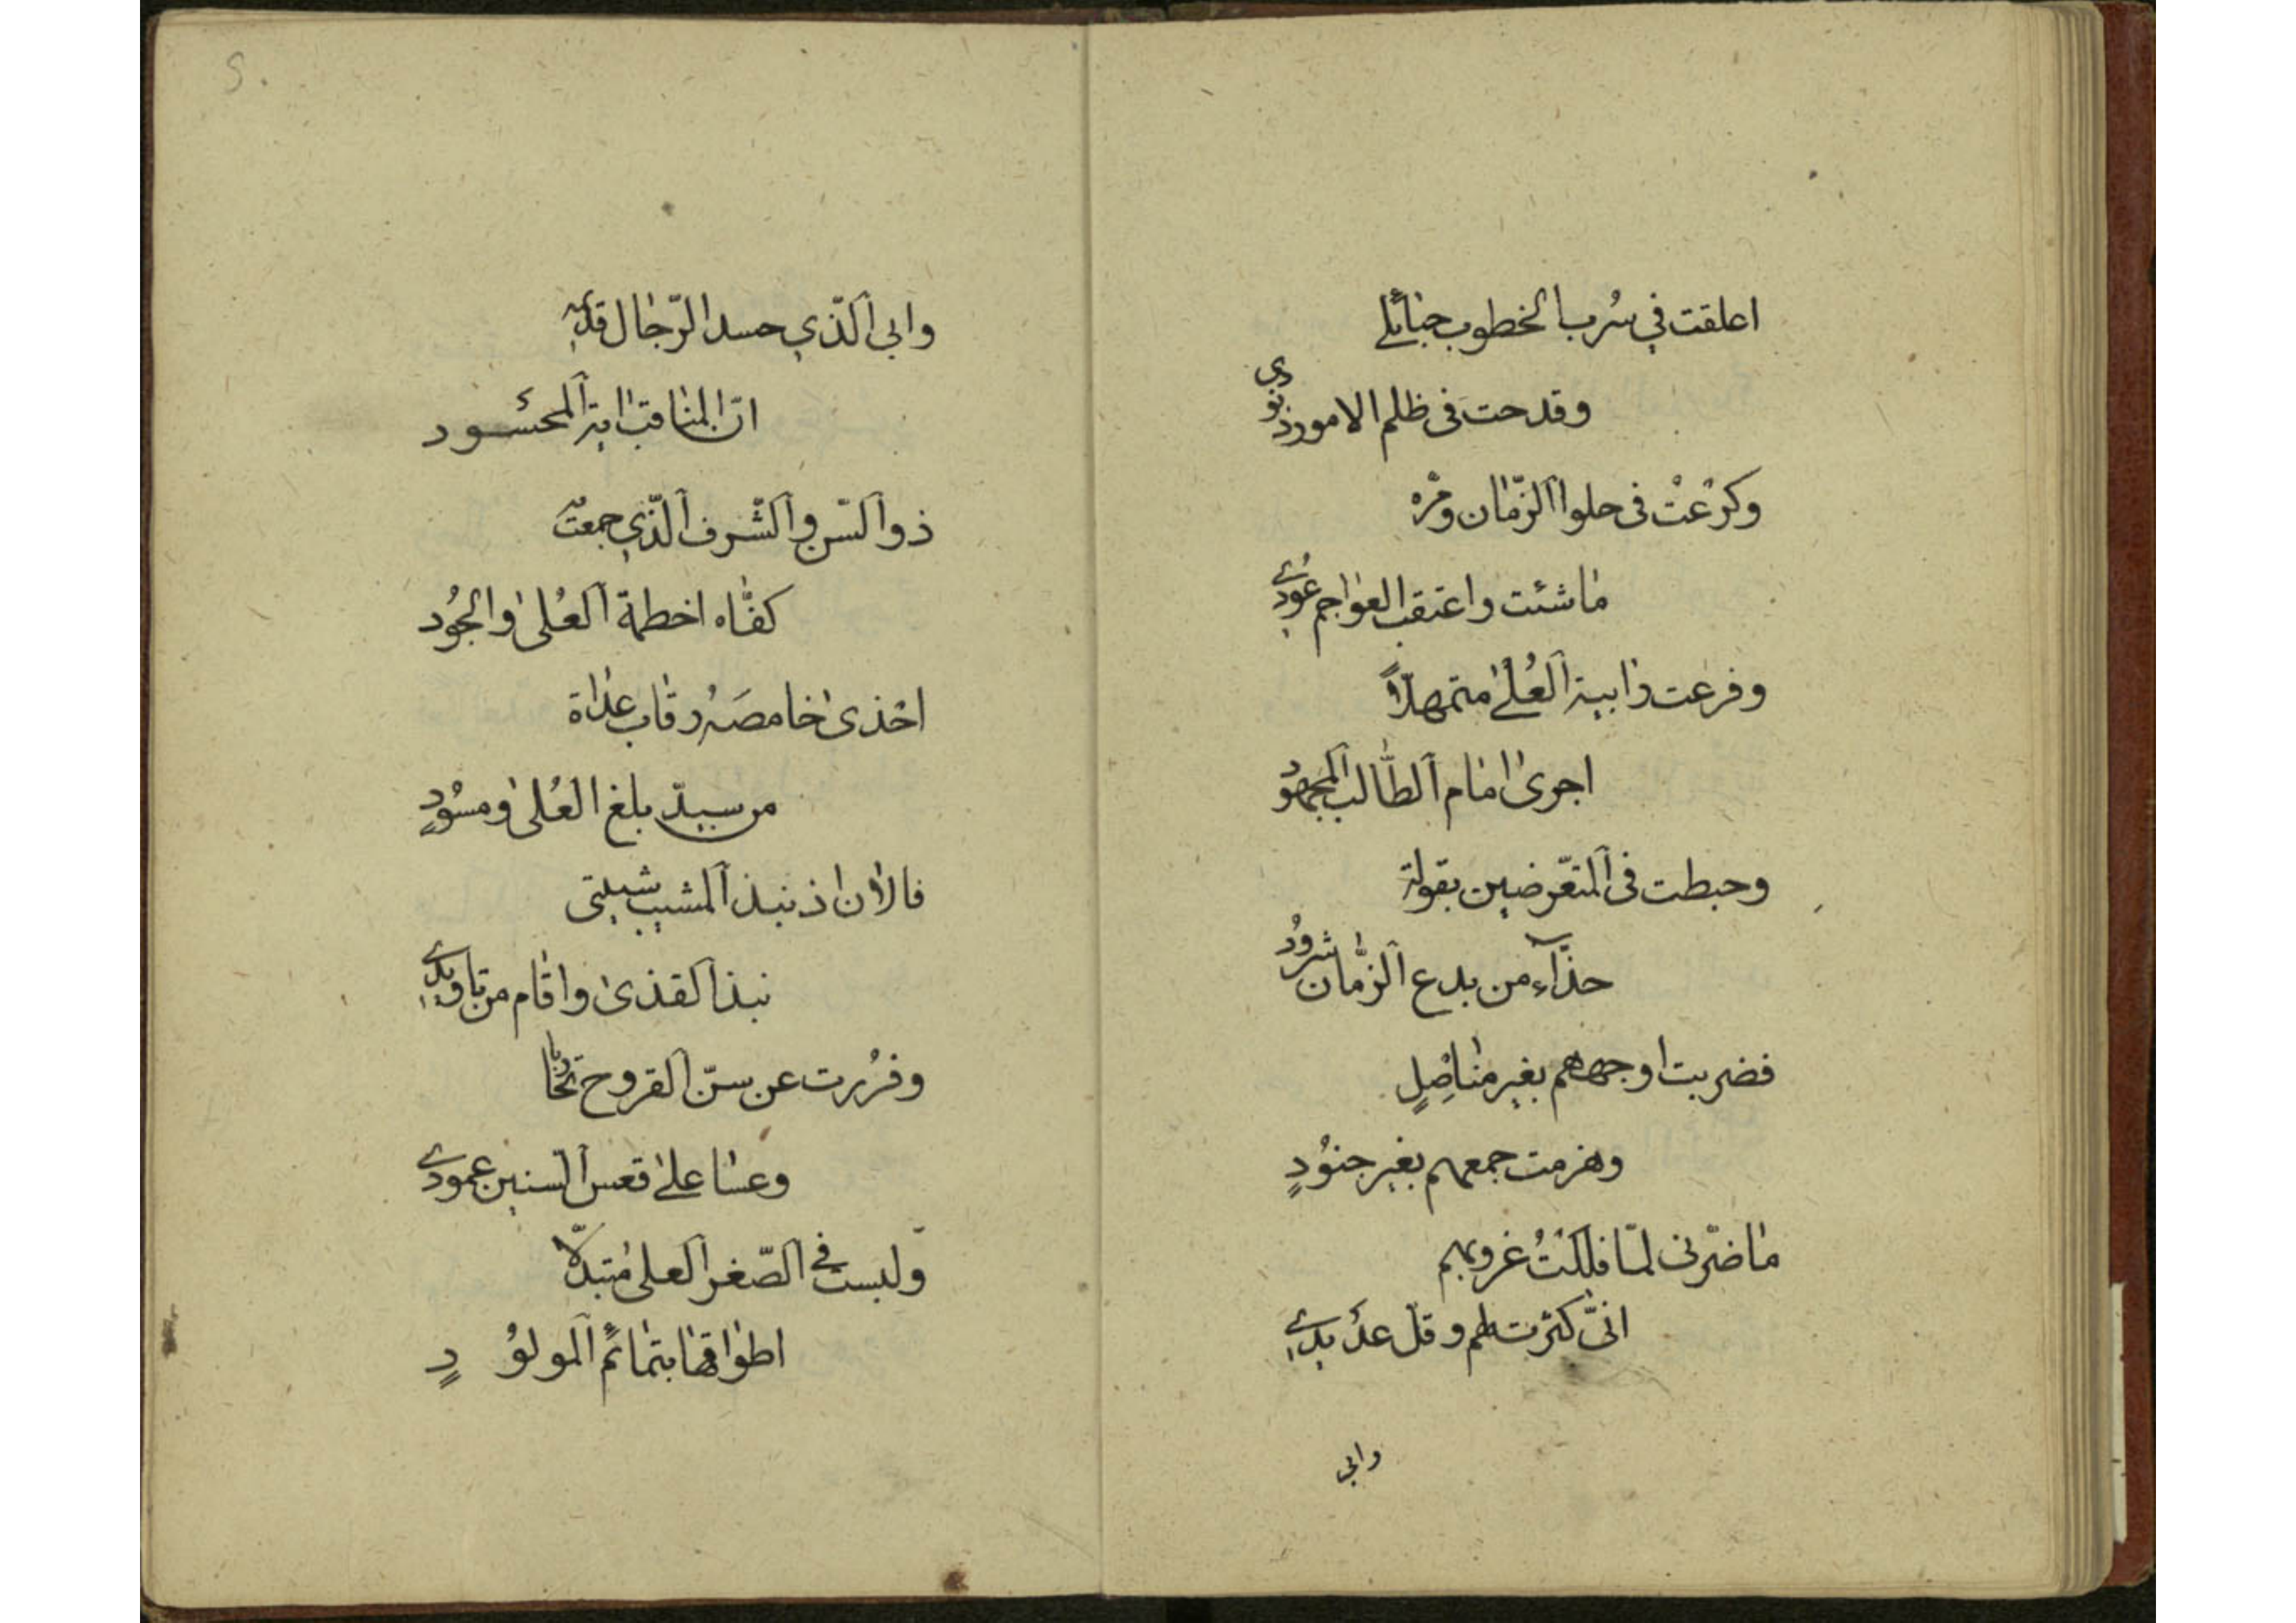 اعلقت في سُرب الخطوب حبائلي
وقدحت في ظلم الامور زنودي
وكرَعْتُ في حلو الزّمان ومُرّه
ما شئت واعتقب العواجم عُودي
وفرعت رابية العُلىٰ متمهلاً
اجرى امام الطّالب المجهود
وحبطت في المتعرّضين بقولة
حذّآء من بدع الزّمان شرُودِ
فضربت اوجههم بغير مناصِلٍ
وهزمت جمعهم بغير جنُودٍ
ما ضرّني لمّا فللتُ غروبهم
انّى كثرت لهم وقلّ عديدي
وابي
وابي الّذي حسد الرّجال قديمه
انّ المناقب اية المحسُود
ذو السّن والشّرف الّذي جمعت به
كفّاه اخطمة العُلىٰ والجُود
احْذى اخامصَه رقاب عداة
من سيّد بلغ العُلىٰ ومسُودٍ
فالآن اذ نبذ المشيب شبيبتى
نبذ القذى واقام من تاويدي
وفرُرت عن سنّ القروح تجاربا
وعسا علىٰ قعس السنين عمودي
ولبست في الصّغر العلىٰ متبدّلا
اطواقها بتمائم المولوُدٍ